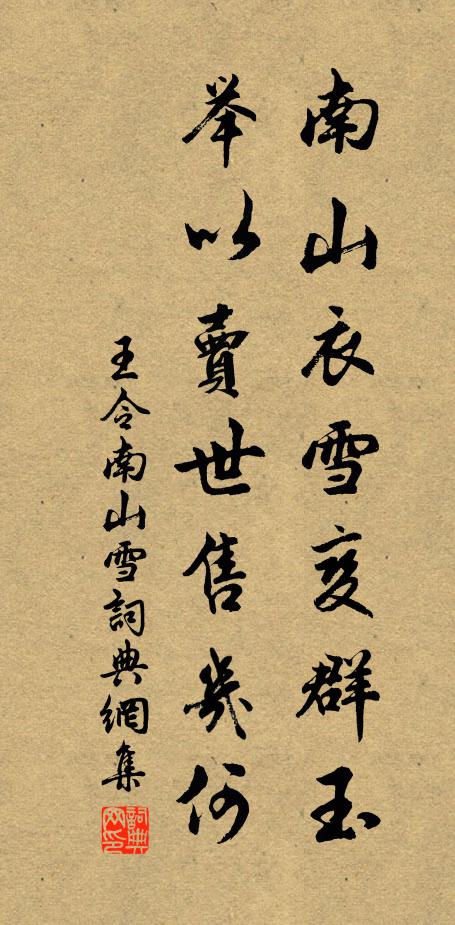 南山衣雪变群玉
举以賣世售幾何
王令南山雪詞典網集
詞典網印